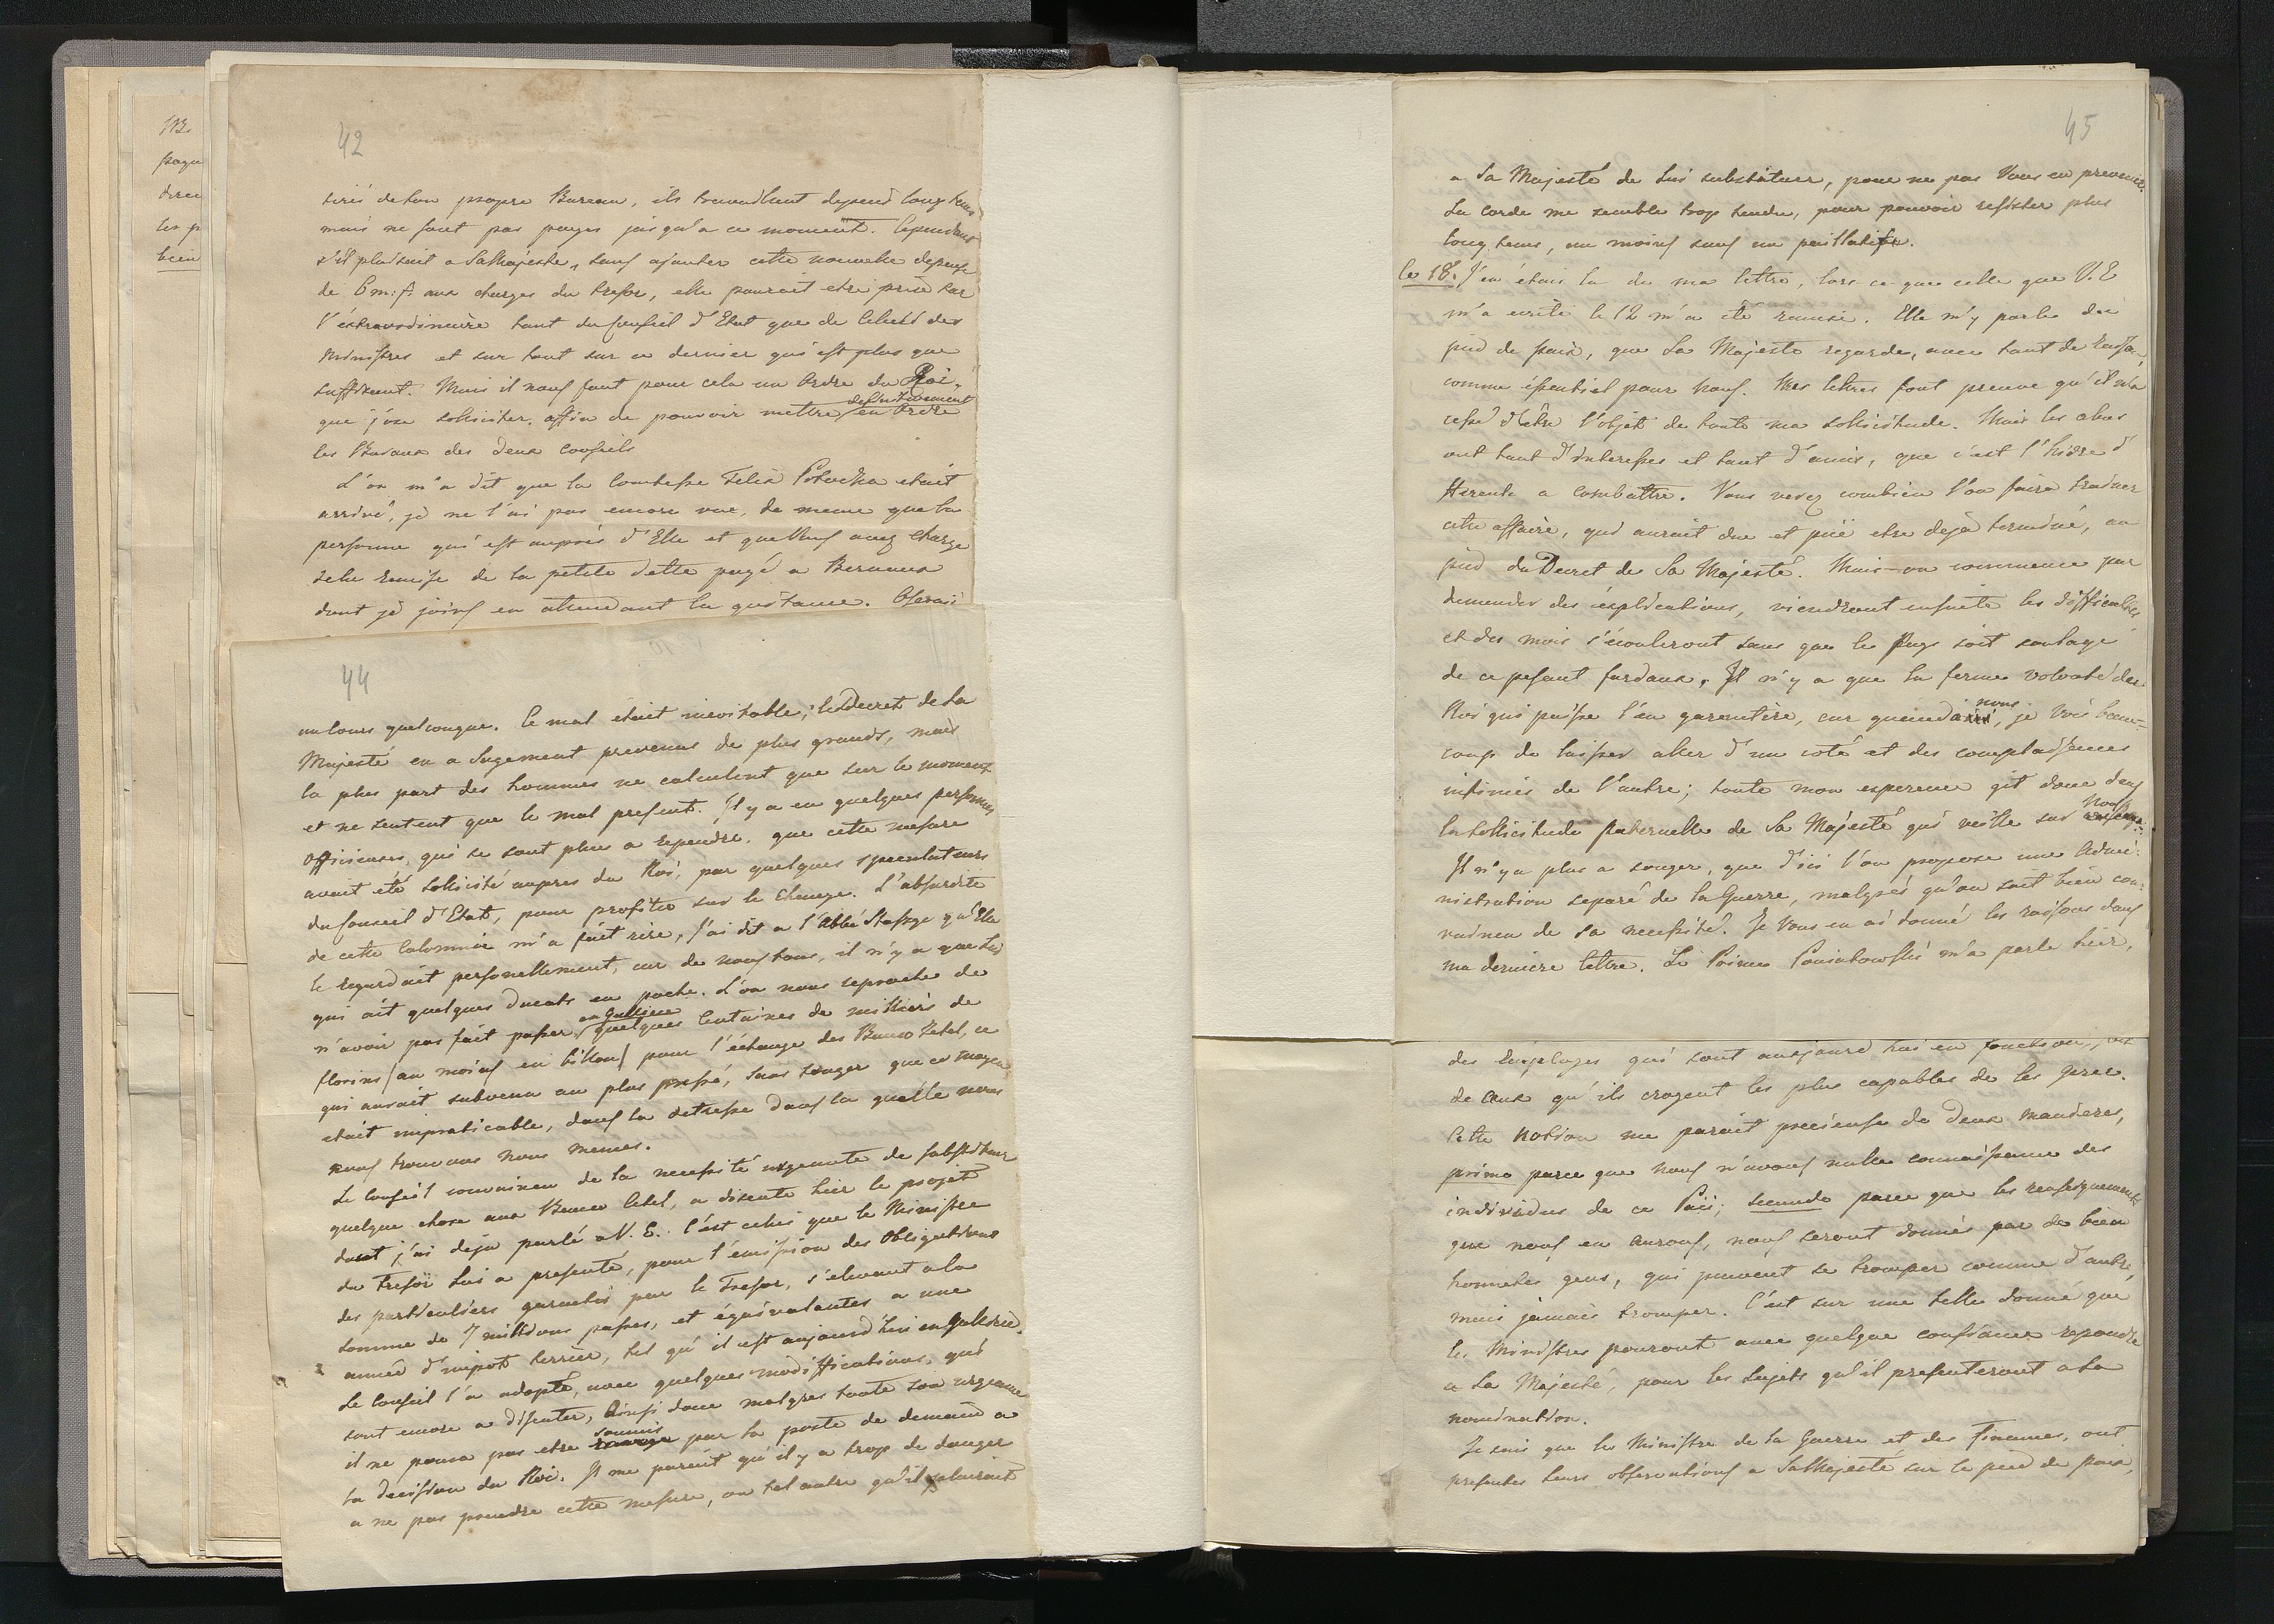 NB.
42
tirés de ton propre Bureau, ils travaillent depuis long tems
mais ne sont pas payés jusqu'a ce moment. Cependant
s'il plaisait a Sa Majesté, sans ajouter cette nouvelle depense
de 6 m: f: aux charges du tresor, elle pourait etre prise sur
l'extraordinaire tant du Conseil d'Etat que de celui des
Ministres et sur tout sur ce dernier qui est plus que
suffisant. Mais il nous faut pour cela un Ordre du Roi,
que j'ose solliciter, affin de pouvoir mettre definitivement en Ordre
les Buraux des deux conseils
L'on m'a dit que la Comtesse Felix Potocka etait
arrivé, je ne l'ai pas encore vue, de meme que la
personne qui est auprès d'Elle et que Vous avez chargé
de la remise de la petite dette payé a Bernaux
dont je joins en attendant la quitance.
44
un cours quelconque. Le mal était inevitable; le Decret de Sa
Majesté en a sagement prevenus de plus grands, mais
la plus part des hommes ne calculent que sur le moment
et ne sentent que le mal present. Il y a eu quelques personnes
officieuses, qui se sont plues a rependre, que cette mesure
avait été sollicité aupres du Roi, par quelques speculateurs
du Conseil d'Etat, pour profiter sur le change. L'absurdité
de cette Calomnie m'a fait rire, j'ai dit a l'Abbé Staszyc qu'Elle
le regardait personellement, car de nous tous, il n'y a que lui
qui ait quelques ducats en poche. L'on nous reproche de
n'avoir pas fait passer en Gallicie quelques Centaines de milliers de
florins (au moins en billon) pour l'échange des Banco Zetel, ce
qui aurait subvenu au plus pressé, sans songer que ce moyen
etait impraticable, dans la detresse dans la quelle nous
nous trouvons nous memes.
Le Conseil convaincu de la necessité urgente de substituer
quelque chose aux Banco Cetel, a discuté hier le projet
dont j'ai deja parlé a V. E. C'est celui que le Ministre
du Tresor lui a presenté, pour l'émission des Obligations
des particuliers garantis par le Tresor, s'elevant a la
somme de 7 millions passés, et équivalentes a une
année d'impot terrier, tel qu'il est aujourd'hui en Gallicie.
Le Conseil l'a adopté, avec quelques modiffications, qui
sont encore a disputer, ainsi donc malgres toute son urgence
il ne poura pas etre soumis par la poste de demain a
la decision du Roi. Il me parait qu'il y a trop de danger
a ne pas prendre cette mesure, ou tel autre qu'il plairait
45
a Sa Majesté de lui substituer, pour ne pas Vous en prevenir.
La corde me semble trop tendue, pour pouvoir resister plus
long tems, au moins sans un paillatif.
le 18. J'en étais la de ma lettre, lors ce que celle que V. E
m'a écrite le 12 m'a été remise. Elle m'y parle du
pied de paix, que Sa Majesté regarde, avec tant de raison,
comme éssentiel pour Nous. Mes lettres font preuve qu'il n'a
cessé d'etre l'objet de toute ma sollicitude. Mais les abus
ont tant d'interesses et tant d'amis, que c'est l'hidre d'
Hercule a combattre. Vous verez combien l'on faira trainer
cette affaire, qui aurait due et puë etre dejà terminé, au
pied du Decret de Sa Majesté. Mais on commence par
demander des explications, viendront ensuite les difficultés
et des mois s'écouleront sans que le Pays soit soulagé
de ce pesant fardaux. Il n'y a que la ferme volonté du
Roi qui puisse l'en garentire, car nous, je vois beau-
coup de laisser aller d'un coté et des complaisances
infinies de l'autre; toute mon esperence git donc dans
la sollicitude paternelle de Sa Majesté qui veille sur Nous.
Il n'y a plus a songer, que d'ici l'on propose une Admi-
nistration separé de la Guerre, malgrés qu'on soit bien con-
vaincu de sa necessité. Je Vous en ai donné les raisons dans
ma derniere lettre. Le Prince Poniatowski m'a parlé hier,
des Employés qui sont aujourd'hui en fonction,
de ceux qu'ils croyent les plus capables de les gerer.
Cette notion me parait precieuse de deux manieres,
primo parce que nous n'avons nulle connaissance des
individus de ce Païs; secundo parce que les renseignements
que nous en aurons, nous seront donnés par de bien
honnetes gens, qui peuvent se tromper comme d'autre,
mais jamais tromper. C'est sur une telle donné que
les Ministres pouront avec quelque confiance repondre
a Sa Majesté, pour les sujets qu'il presenteront a Sa
nomination.
Je sais que les Ministre de la Guerre et des Finances, ont
presentés leurs observations a Sa Majesté sur le pied de paix,